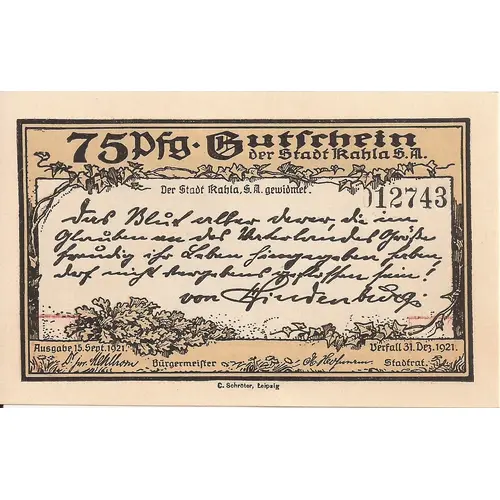 75 Pfg. Gutschein
der Stadt Kahla S.A.
Der Stadt Kahla, S.A. gewidmet.
012743
Das Blut aller derer, die im
Glauben an des Vaterlandes Größe
freudig ihr Leben hingegeben haben,
darf nicht vergebens geflossen sein!
von Hindenburg.
Ausgabe 15. Sept. 1921.
Verfall 31. Dez. 1921.
Bürgermeister
Stadtrat.
C. Schröter, Leipzig